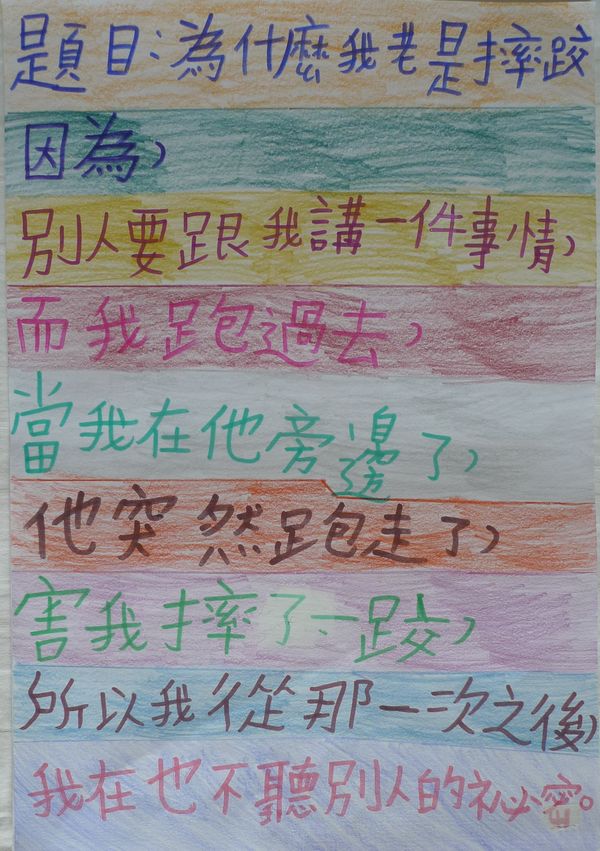 題目:為什麼我老是摔跤
因為,
別人要跟我講一件事情,
而我跑過去,
當我在他旁邊了,
他突然跑走了,
害我摔了一跤,
所以我從那一次之後,
我在也不聽別人的祕密。